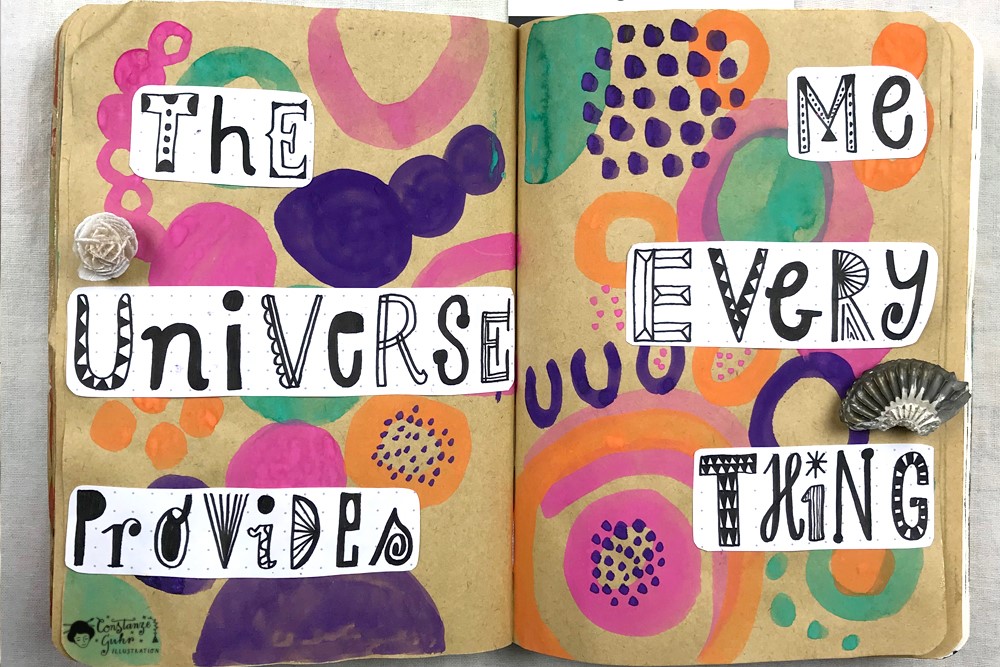 The
Universe
Provides
Me
Every
Thing
Constanze
Guhr
ILLUSTRATION